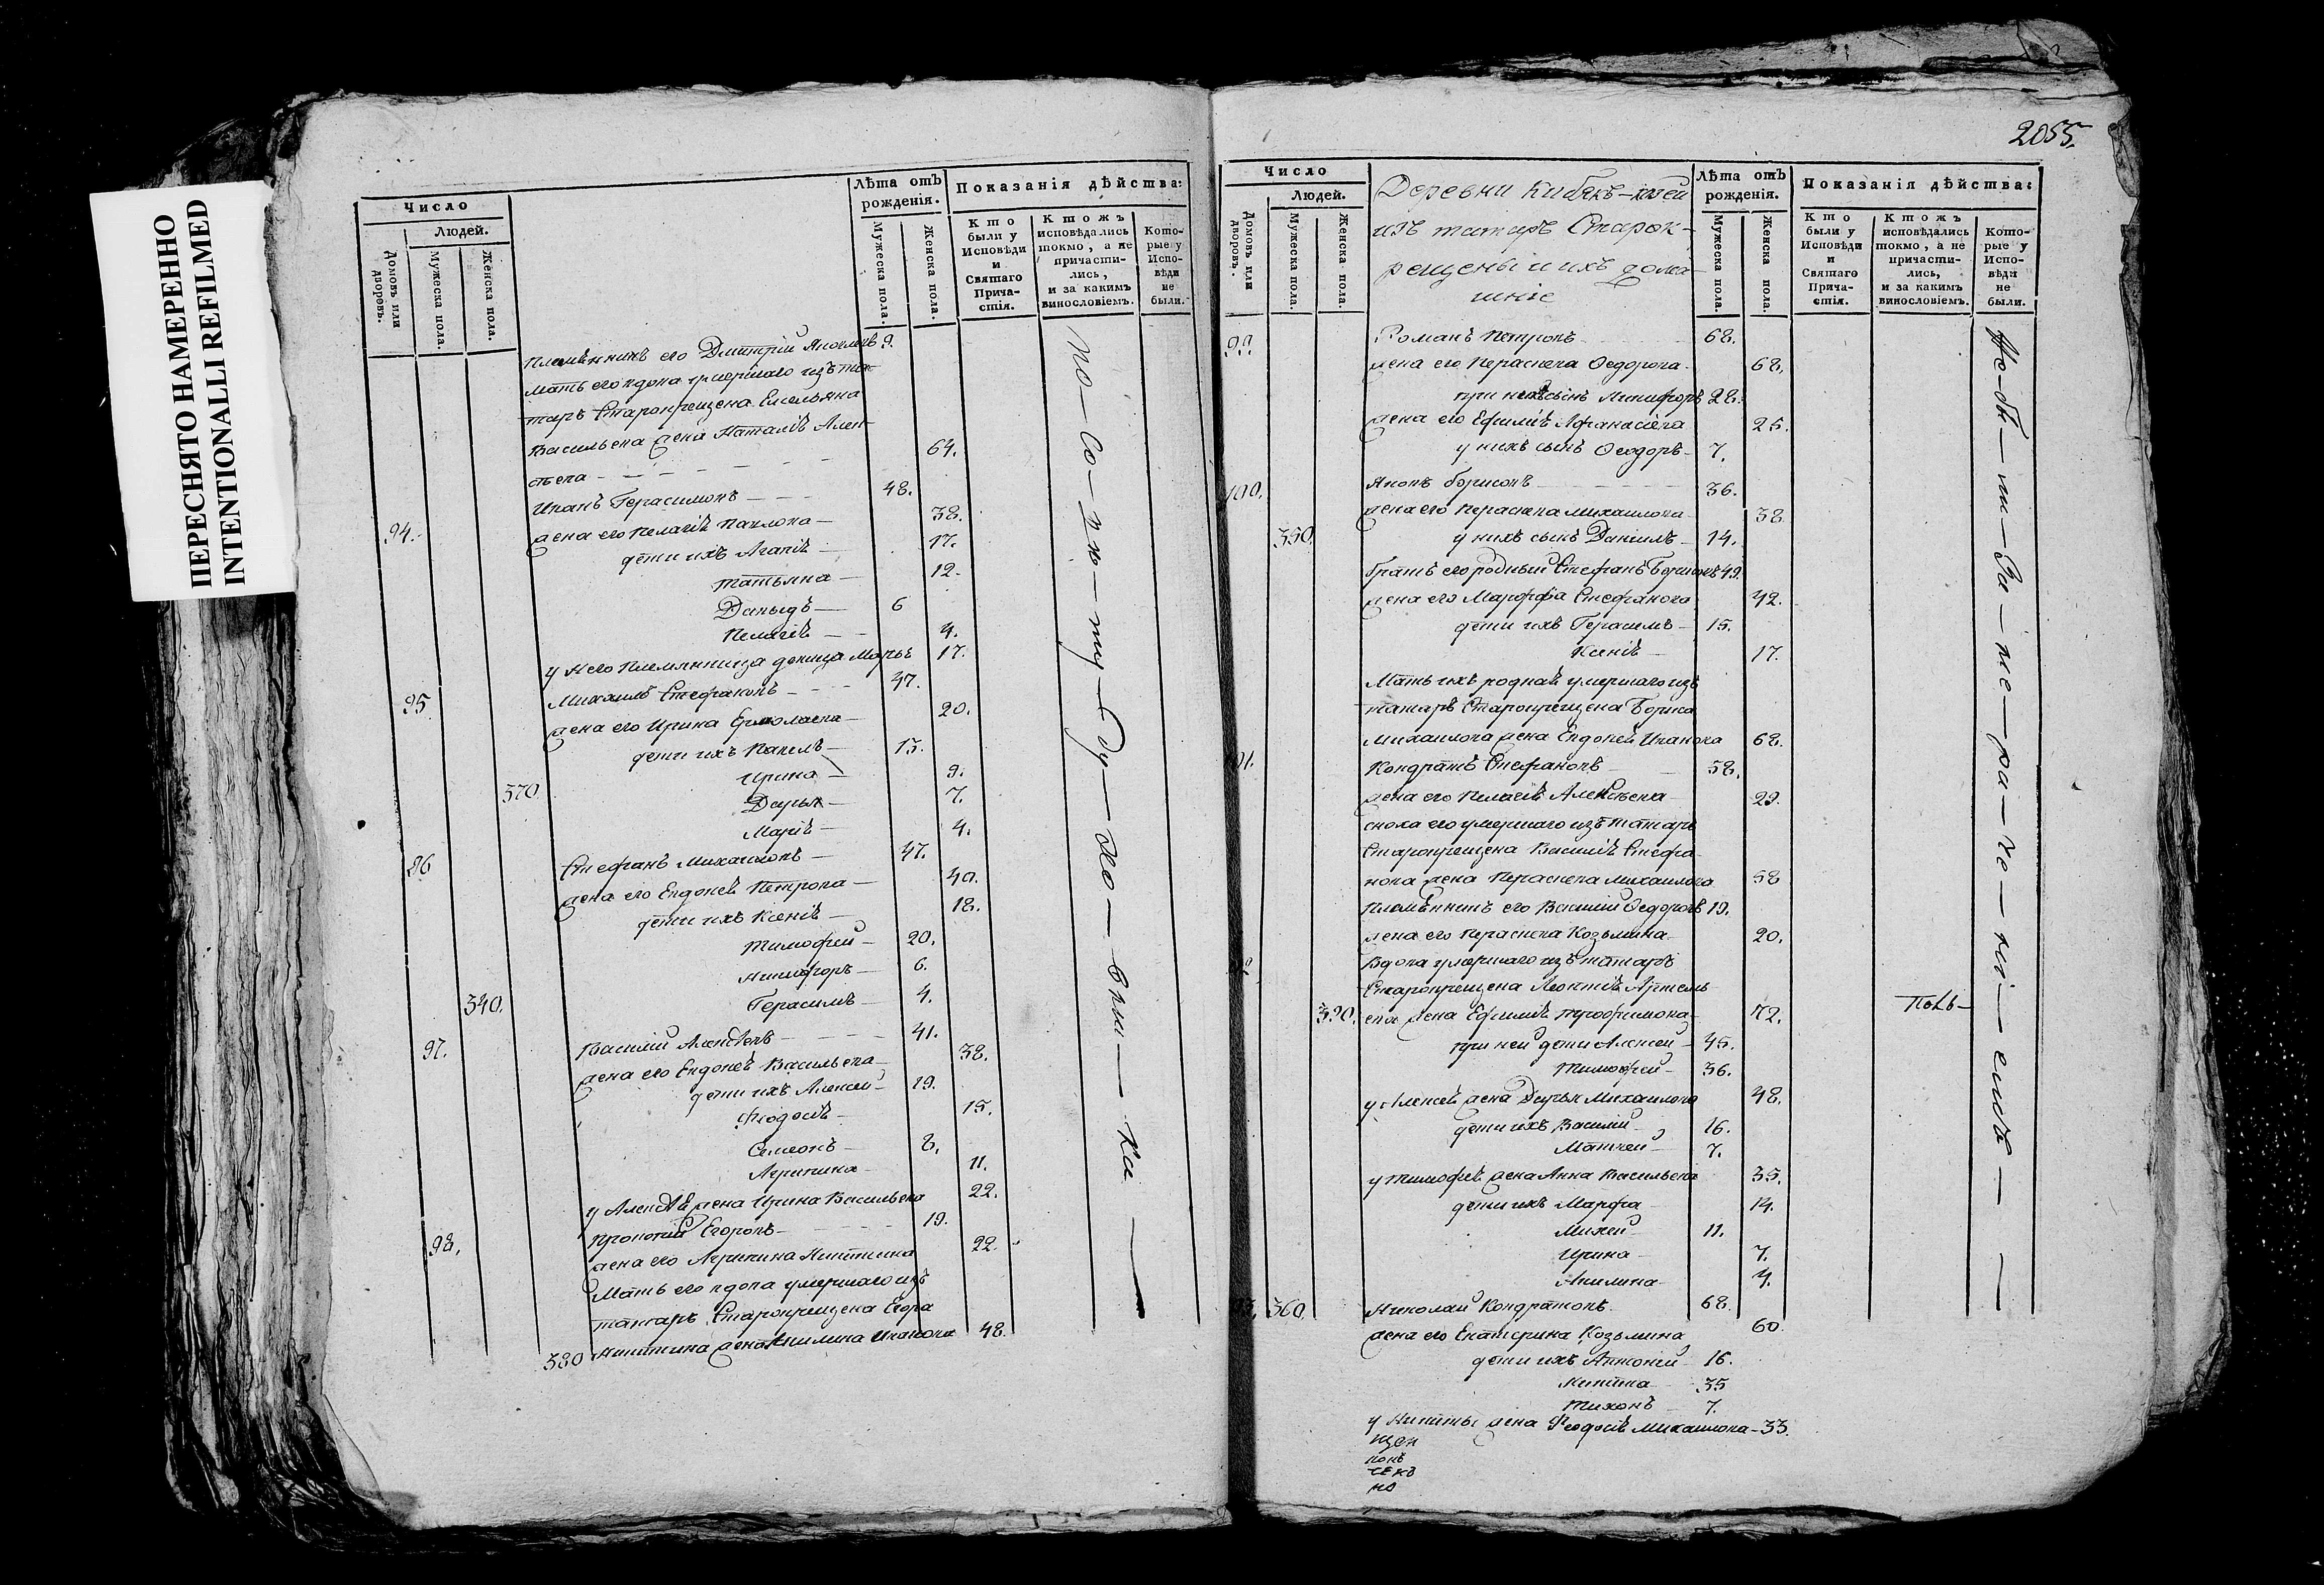 ПЕРЕСНЯТО НАМЕРЕННО
INTENTIONALLI REFILMED
Число
Людей.
Домовъ или дворовъ.
Мужеска пола.
Женска пола.
Лѣта отъ рожденія.
Мужеска пола.
Женска пола.
Показанія дѣйства:
Кто были у Исповѣди и Святаго Причастія.
Ктожъ исповѣдались токмо, а не причастились, и за какимъ винословіемъ.
Которые у Исповѣди не были.
Племянникъ его Дмитрий Яковлевъ 9.
Мать его вдова умершаго изъ та-
таръ Старокрещена Емельяна
Васильева жена Наталіѣ Алек-
сѣева 64.
94. Иванъ Герасимовъ 48.
жена его Пелагіѣ Павлова 38.
дети ихъ Агапіѣ 17.
Татьяна 12.
Давыдъ 6
Пелагіѣ 4.
у Него Племянница девица Марьѣ 17.
95. Михаилъ Стефановъ 47.
жена его Ирина Ермолаева 20.
дети ихъ Павелъ 15.
Ирина 9.
370. Дарья 7.
Маріѣ 4.
96 Стефанъ Михаиловъ 47.
жена его Евдокеѣ Петрова 40.
дети ихъ Ксеніѣ 18.
Тимофей 20.
Никифоръ 6.
340. Герасимъ 4.
97. Василий Алексѣевъ 41.
жена его Евдокеѣ Васильева 38.
дети ихъ Алексей 19.
Феодосіѣ 15.
Симеонъ 8.
Агрипина 11.
у Алексѣя жена Ирина Васильева 22.
98. Прокопий Егоровъ 19.
жена его Агрипина Никитина 22.
Мать его вдова умершаго изъ
татаръ Старокрещена Егора
380 Никитина жена Акилина Иванова 48.
2055.
Число
Людей.
Домовъ или дворовъ.
Мужеска пола.
Женска пола.
Деревни Кибякъ-
изъ татаръ Старок-
рещены и ихъ дома-
шніе
Лѣта отъ рожденія.
Мужеска пола.
Женска пола.
Показанія дѣйства:
Кто были у Исповѣди и Святаго Причастія.
Ктожъ исповѣдались токмо, а не причастились, и за какимъ винословіемъ.
Которые у Исповѣди не были.
99. Романъ Петровъ 68.
жена его Параскева Федорова 68.
при нихъ сынъ Никифоръ 28.
жена его Ефиміѣ Афанасіева 25.
у нихъ сынъ Феодоръ 7.
100. Яковъ Борисовъ 36.
жена его Параскева Михаилова 38
350. у нихъ сынъ Даніилъ 14.
братъ его родный Стефанъ Борисовъ 49.
жена его Марффа Стефанова 42.
дети ихъ Герасимъ 15.
Ксеніѣ 17.
Мать ихъ роднаѣ умершаго изъ
татаръ Старокрещена Бориса
Михаилова жена Евдокеѣ Иванова 68.
101. Кондратъ Стефановъ 58.
жена его Пелагіѣ Алексѣева 29.
сноха его умершаго изъ татаръ
Старокрещена Василіѣ Стефа-
нова жена Параскева Михаилова 58
Племянникъ его Василий Федоровъ 19.
жена его Параскева Козьмина 20.
Вдова умершаго изъ татаръ
Старокрещена Леонтіѣ Артемь-
390. ева жена Ефиміѣ Трофимова 72.
при ней дети Алексей 45.
Тимофей 36.
у Алексеѣ жена Дарья Михаилова 48.
дети ихъ Василий 16.
Матвей 7.
у Тимофеѣ жена Анна Васильева 35.
дети ихъ Марфа 14.
Михей 11.
Ирина 7.
Акилина 4.
360. Николай Кондратовъ 68.
жена его Екатерина Козьмина 60.
дети ихъ Антоней 16.
Никита 35
Тихонъ 7.
у Никиты жена Феодосіѣ Михаилова 33.